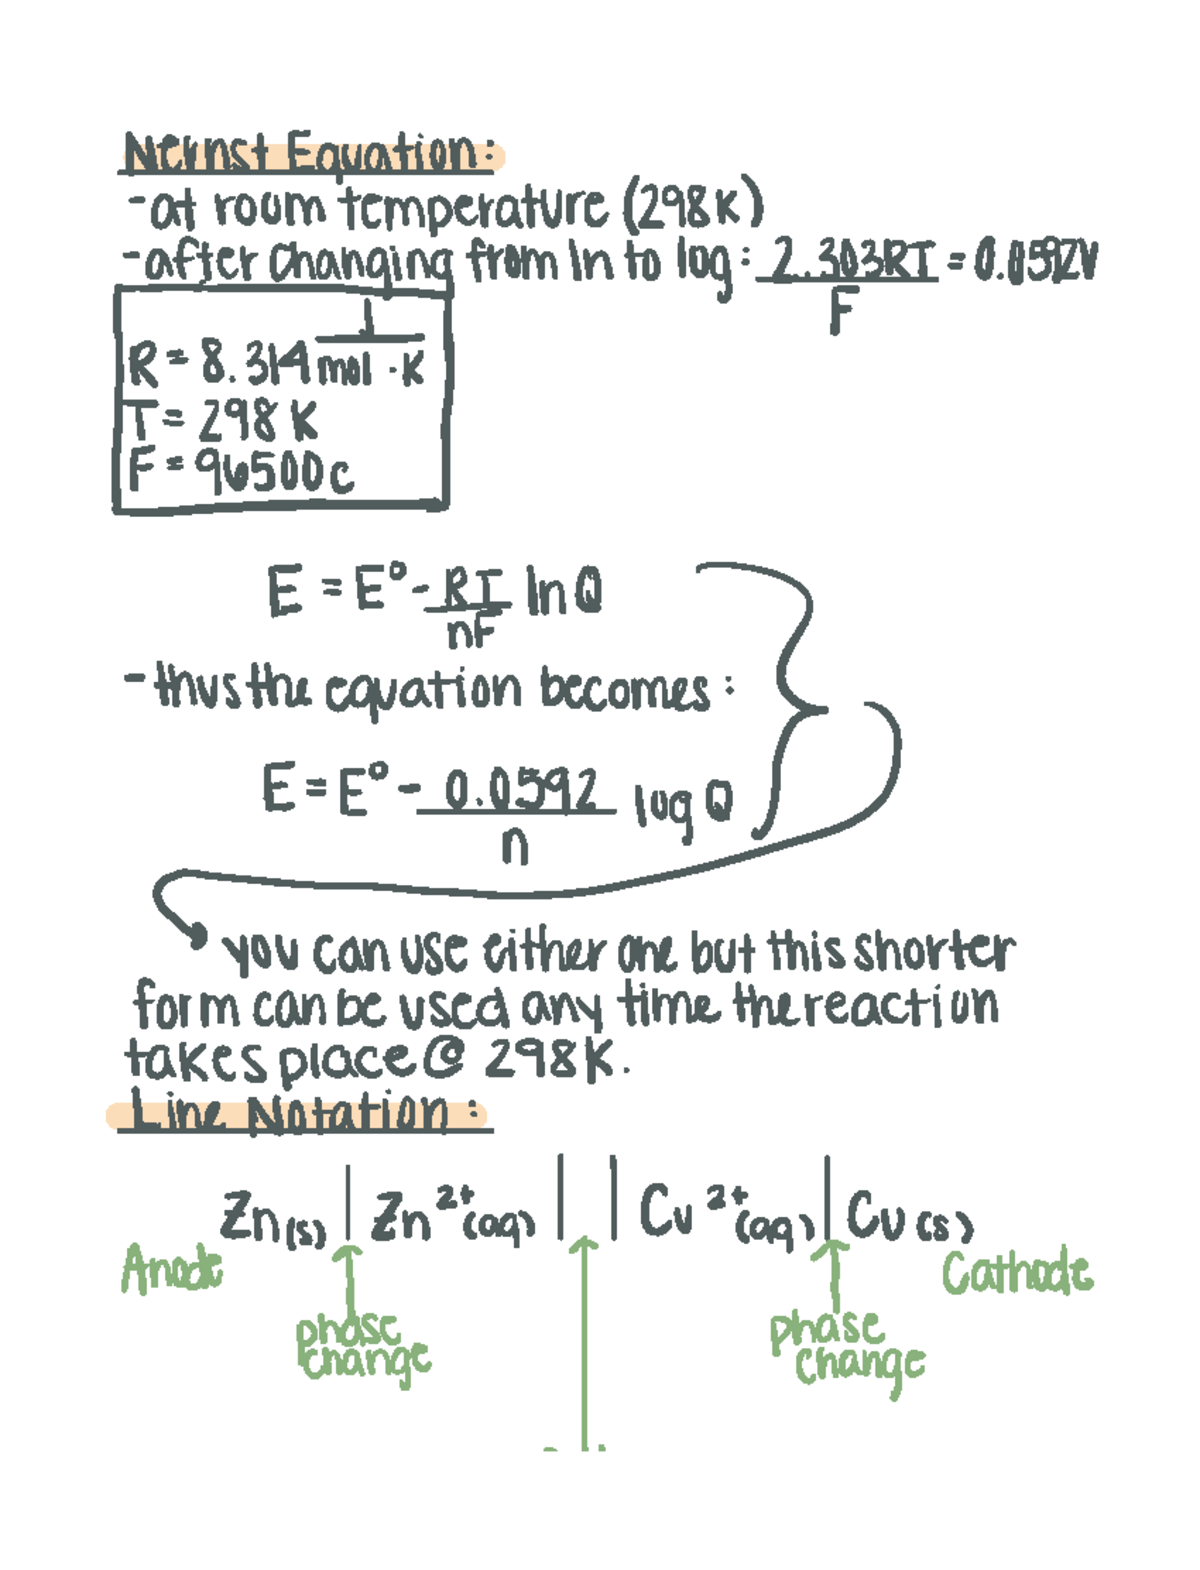 Nernst Equation:
-at room temperature (298K)
-after changing from ln to log: 2.303RT/F = 0.0592V
R = 8.314 J/mol·K
T = 298 K
F = 96500 C
E = E° - RT/nF ln Q
-thus the equation becomes:
E = E° - 0.0592/n log Q
you can use either one but this shorter
form can be used any time the reaction
takes place @ 298K.
Line Notation:
Zn(s) | Zn²⁺(aq) | | Cu²⁺(aq) | Cu(s)
Anode Cathode
phase change
phase change